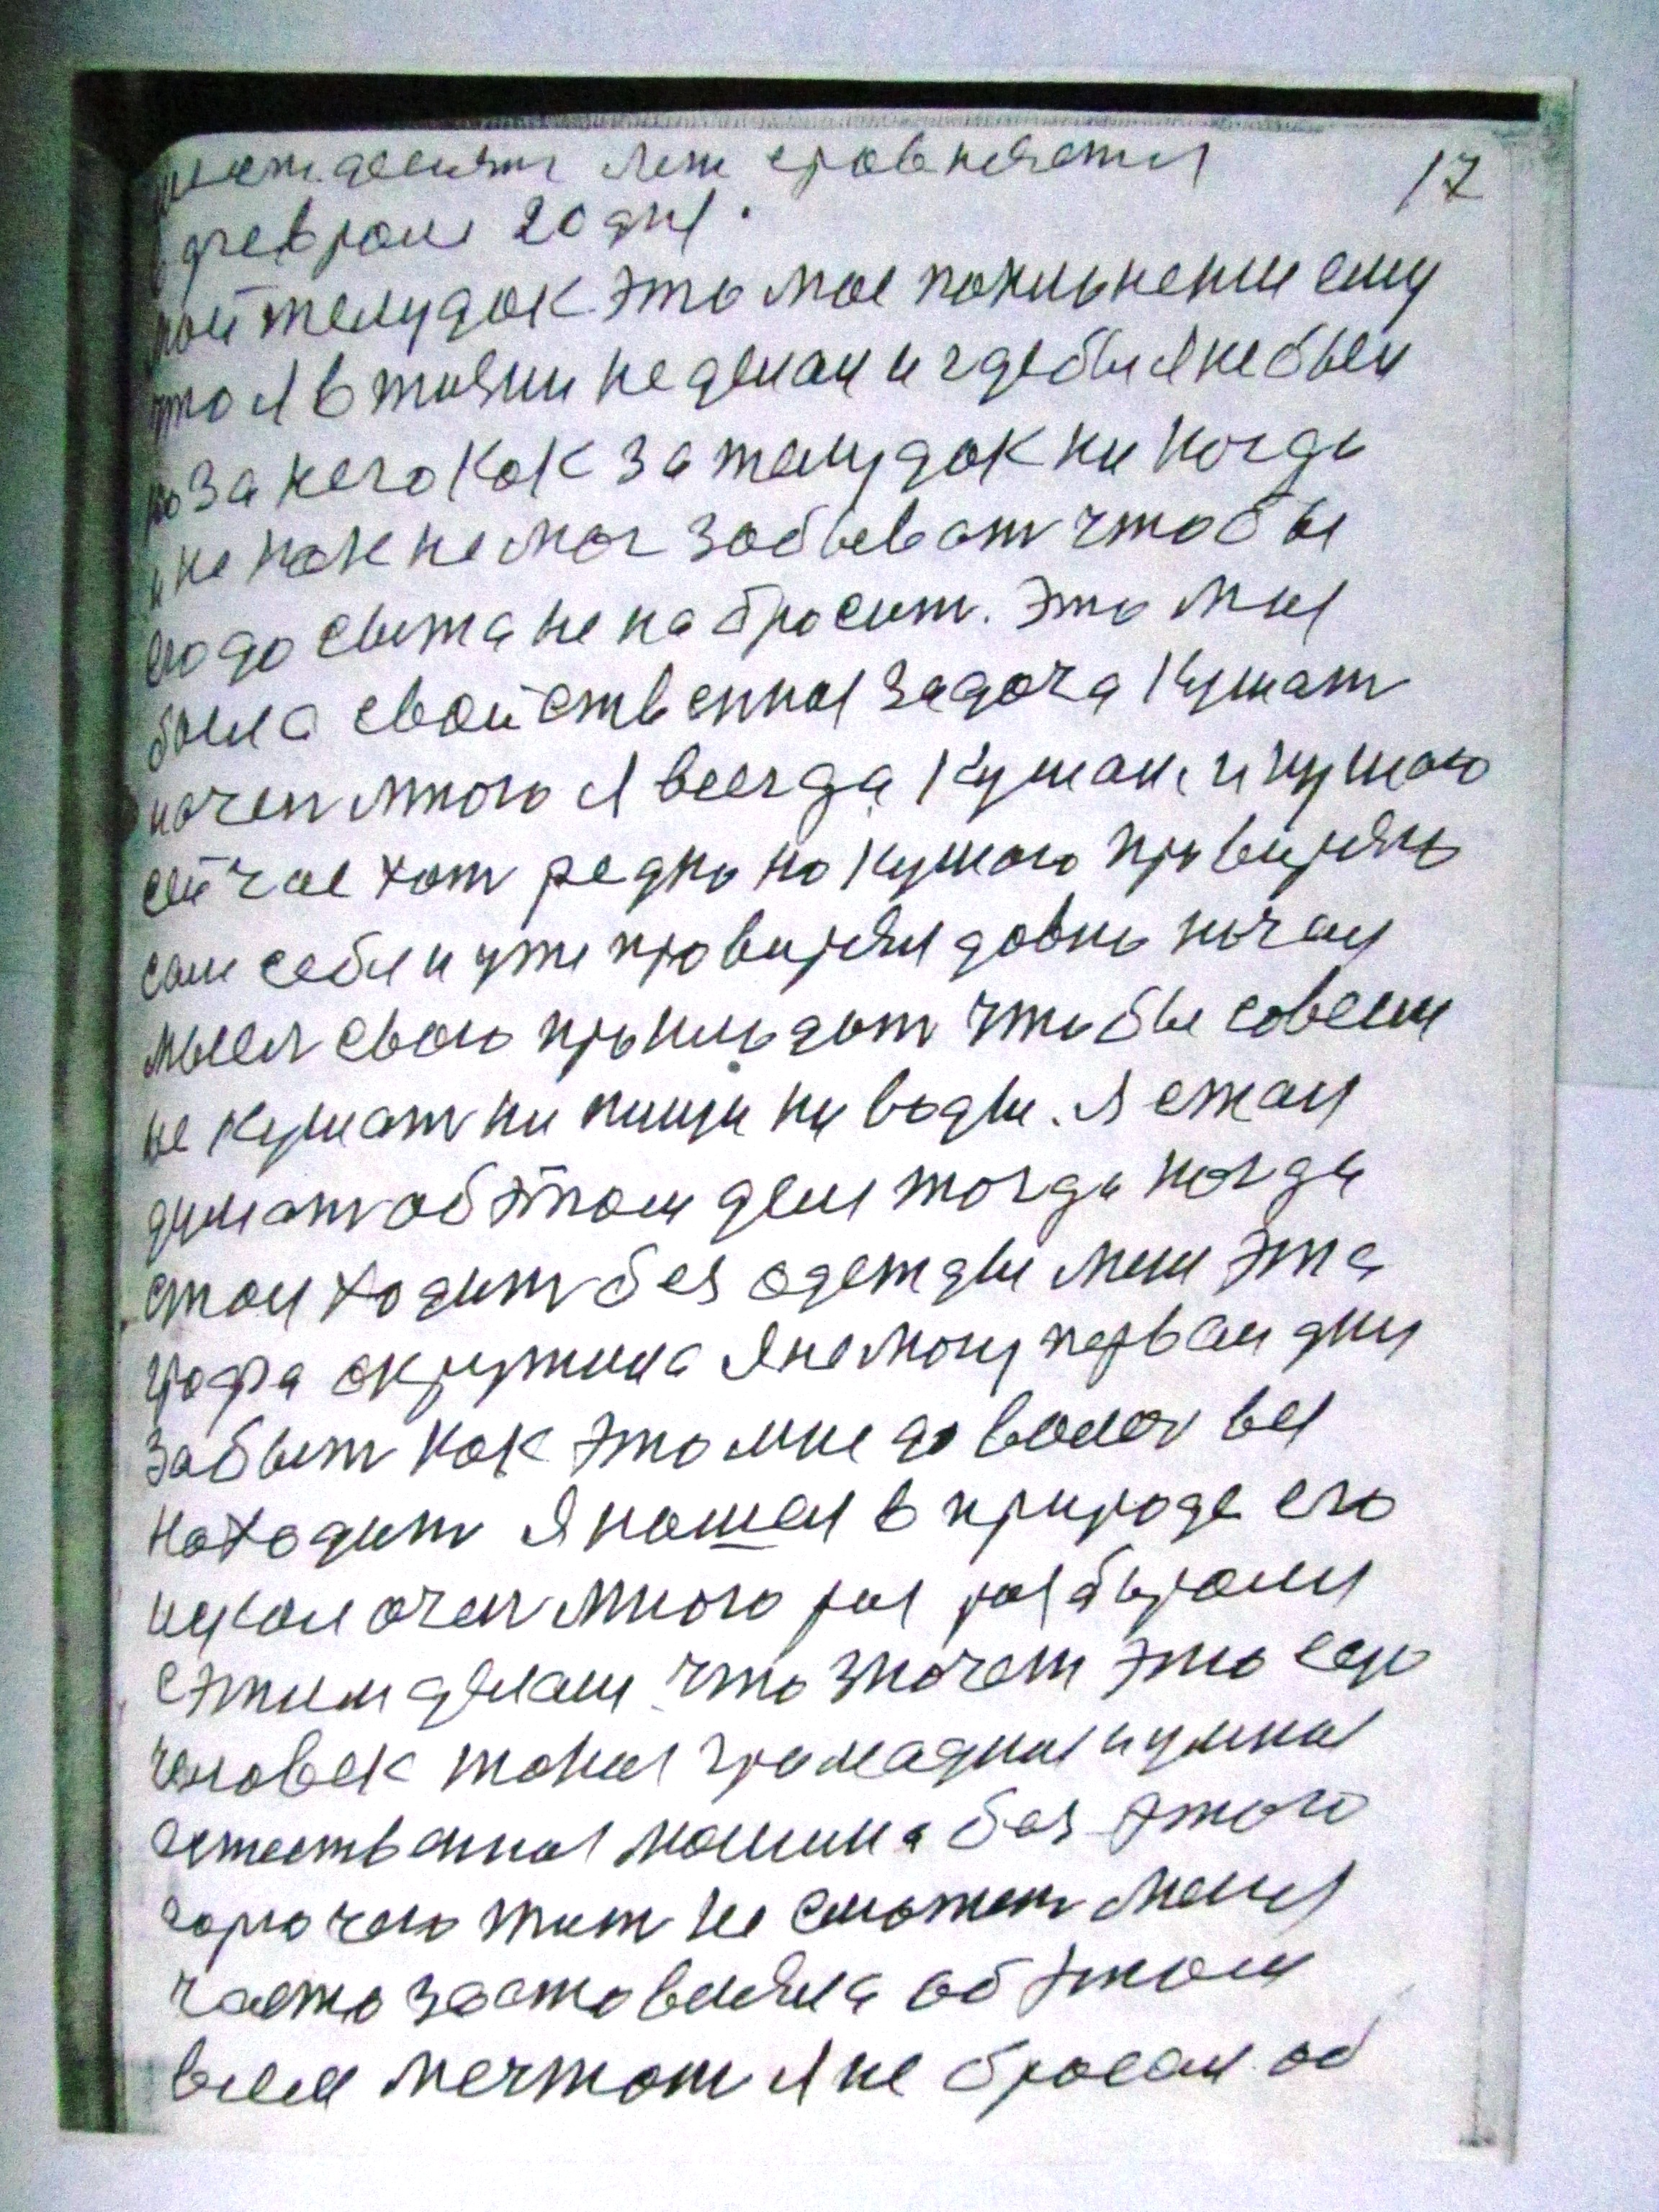 лет сровняется 17
феврале 20 дня.
мой желудок это мое поклонение ему
что я в жизни не делал и где бы я не был
но за него как за желудок ни когда
и не как не мог забыват чтобы
его до сыта не набросит. Это моя
была свойственная задача кушат
иочен много я всегда кушал и кушаю
сейчас хот редко но кушаю провиряю
сам себя и уже провирял давно начал
мысл свою прокладат чтобы совсем
не кушат ни пищи ни воды. Я стал
думат об этом деле тогда когда
стал ходит без одежды мене эта
графа окружила Я не могу первай дни
забыт как это мне доволос вся
находит Я нашел в природе его
искал очен много раз разбирался
с этим делам что значет это еда
человек такая громадная и умная
естественная машина без этого
горючего жит не сможет меня
часто заставляла об этом
всем мечтат я не бросал об